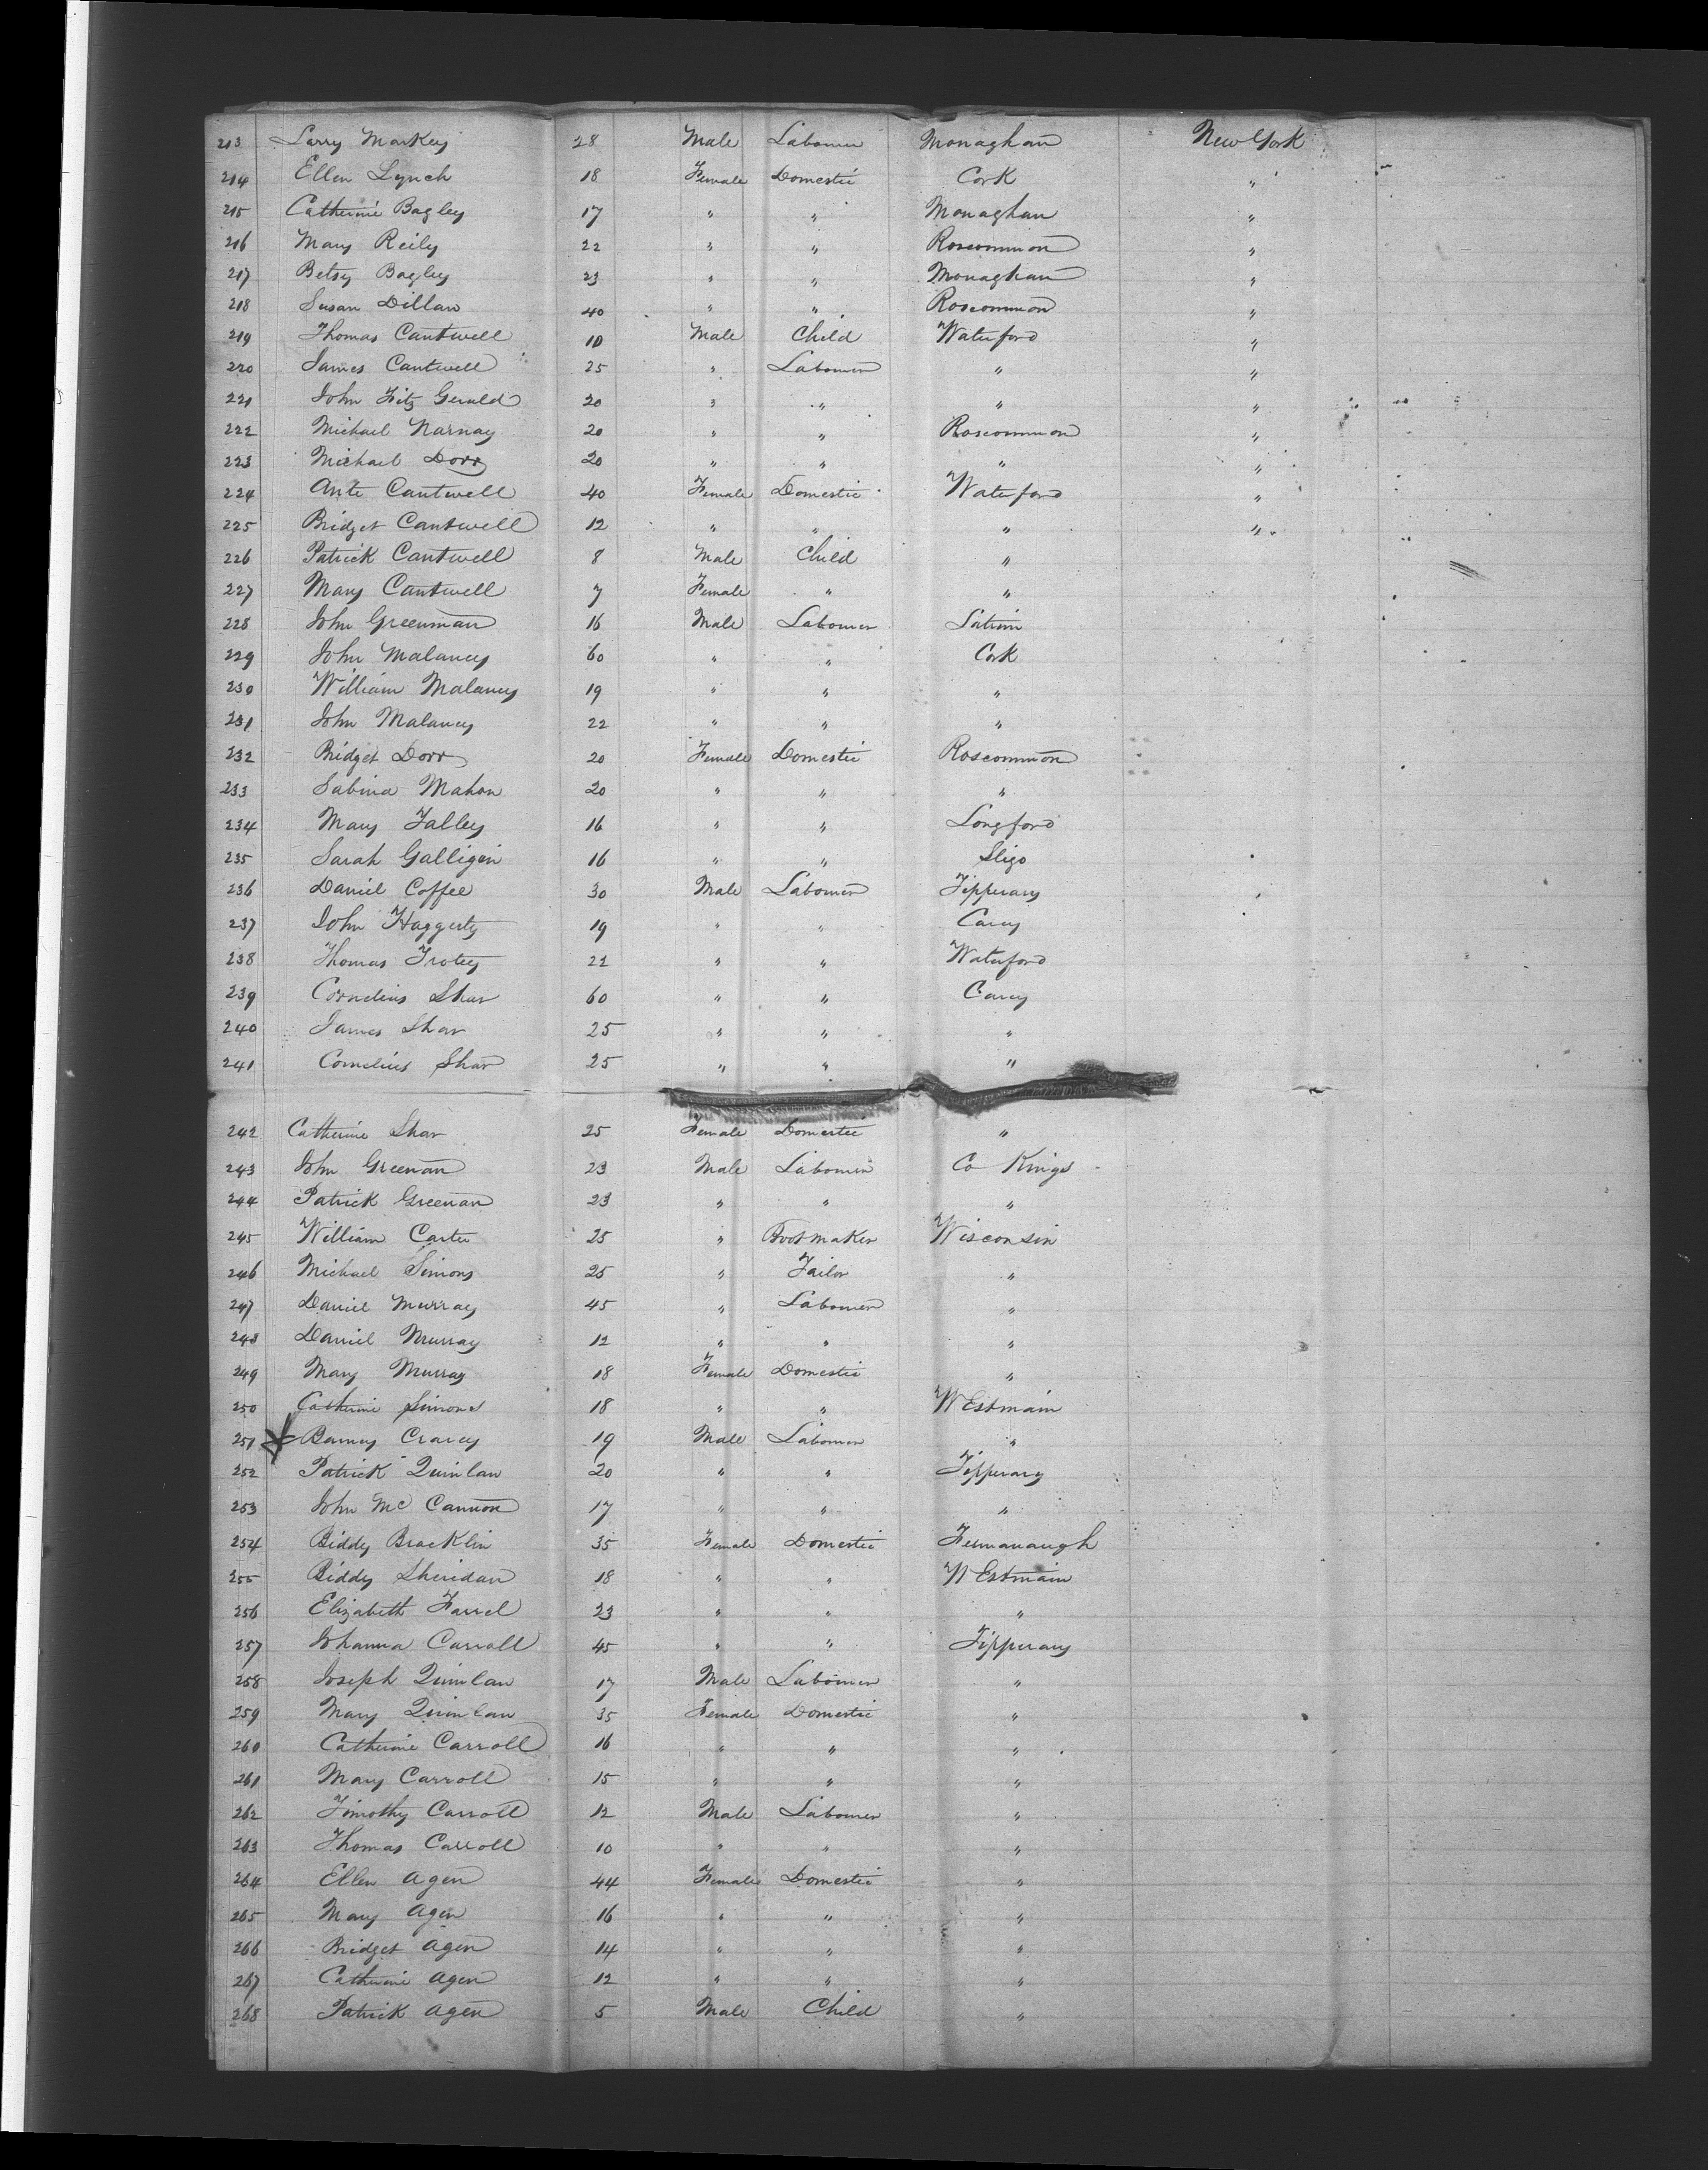 213 Larry Markey 28 Male Labourer Monaghan New York
214 Ellen Lynch 18 Female Domestic Cork "
215 Catherine Bagley 17 " " Monaghan "
216 Mary Reily 22 " " Roscommon "
217 Betsy Bagley 23 " " Monaghan "
218 Susan Dillan 40 " " Roscommon "
219 Thomas Cantwell 10 Male Child Waterford "
220 James Cantwell 25 " Labourer " "
221 John Fitz Gerald 20 " " " "
222 Michael Narnay 20 " " Roscommon "
223 Michael Dorr 20 " " " "
224 Cantwell 40 Female Domestic Waterford "
225 Bridget Cantwell 12 " " " "
226 Patrick Cantwell 8 Male Child "
227 Mary Cantwell 7 Female " "
228 John Greenman 16 Male Labourer Latrim
229 John Malaney 60 " " Cork
230 William Malaney 19 " " "
231 John Malaney 22 " " "
232 Bridget Dorr 20 Female Domestic Roscommon
233 Sabina Mahon 20 " " "
234 Mary Falley 16 " " Longford
235 Sarah Galligin 16 " " Sligo
236 Daniel Coffee 30 Male Labourer Tipperary
237 John Haggerty 19 " " Carey
238 Thomas Trotey 22 " " Waterford
239 Cornelius Shar 60 " " Carey
240 James Shar 25 " " "
241 Cornelius Shar 25 " " "
242 Catherine Shar 25 Female Domestic "
243 John Greenan 23 Male Labourer Co Kings
244 Patrick Greenan 23 " " "
245 William Carter 25 " Bootmaker Wisconsin
246 Michael Simons 25 " Tailor "
247 Daniel Murray 45 " Labourer "
248 Daniel Murray 12 " " "
249 Mary Murray 18 Female Domestic "
250 Catherine Simons 18 " " WEstmain
251 Barney Cravey 19 Male Labourer "
252 Patrick Quinlan 20 " " Tipperary
253 John Mc Cannon 17 " " "
254 Biddy Bracklin 35 Female Domestic Fermanaugh
255 Biddy Sheridan 18 " " WEstmain
256 Elizabeth Farrel 23 " " "
257 Johanna Carroll 45 " " Tipperary
258 Joseph Quinlan 17 Male Labourer "
259 Mary Quinlan 35 Female Domestic "
260 Catherine Carroll 16 " " "
261 Mary Carroll 15 " " "
262 Timothy Carroll 12 Male Labourer "
263 Thomas Carroll 10 " " "
264 Ellen Agen 44 Female Domestic "
265 Mary Agen 16 " " "
266 Bridget Agen 14 " " "
267 Catherine Agen 12 " " "
268 Patrick Agen 5 Male Child "